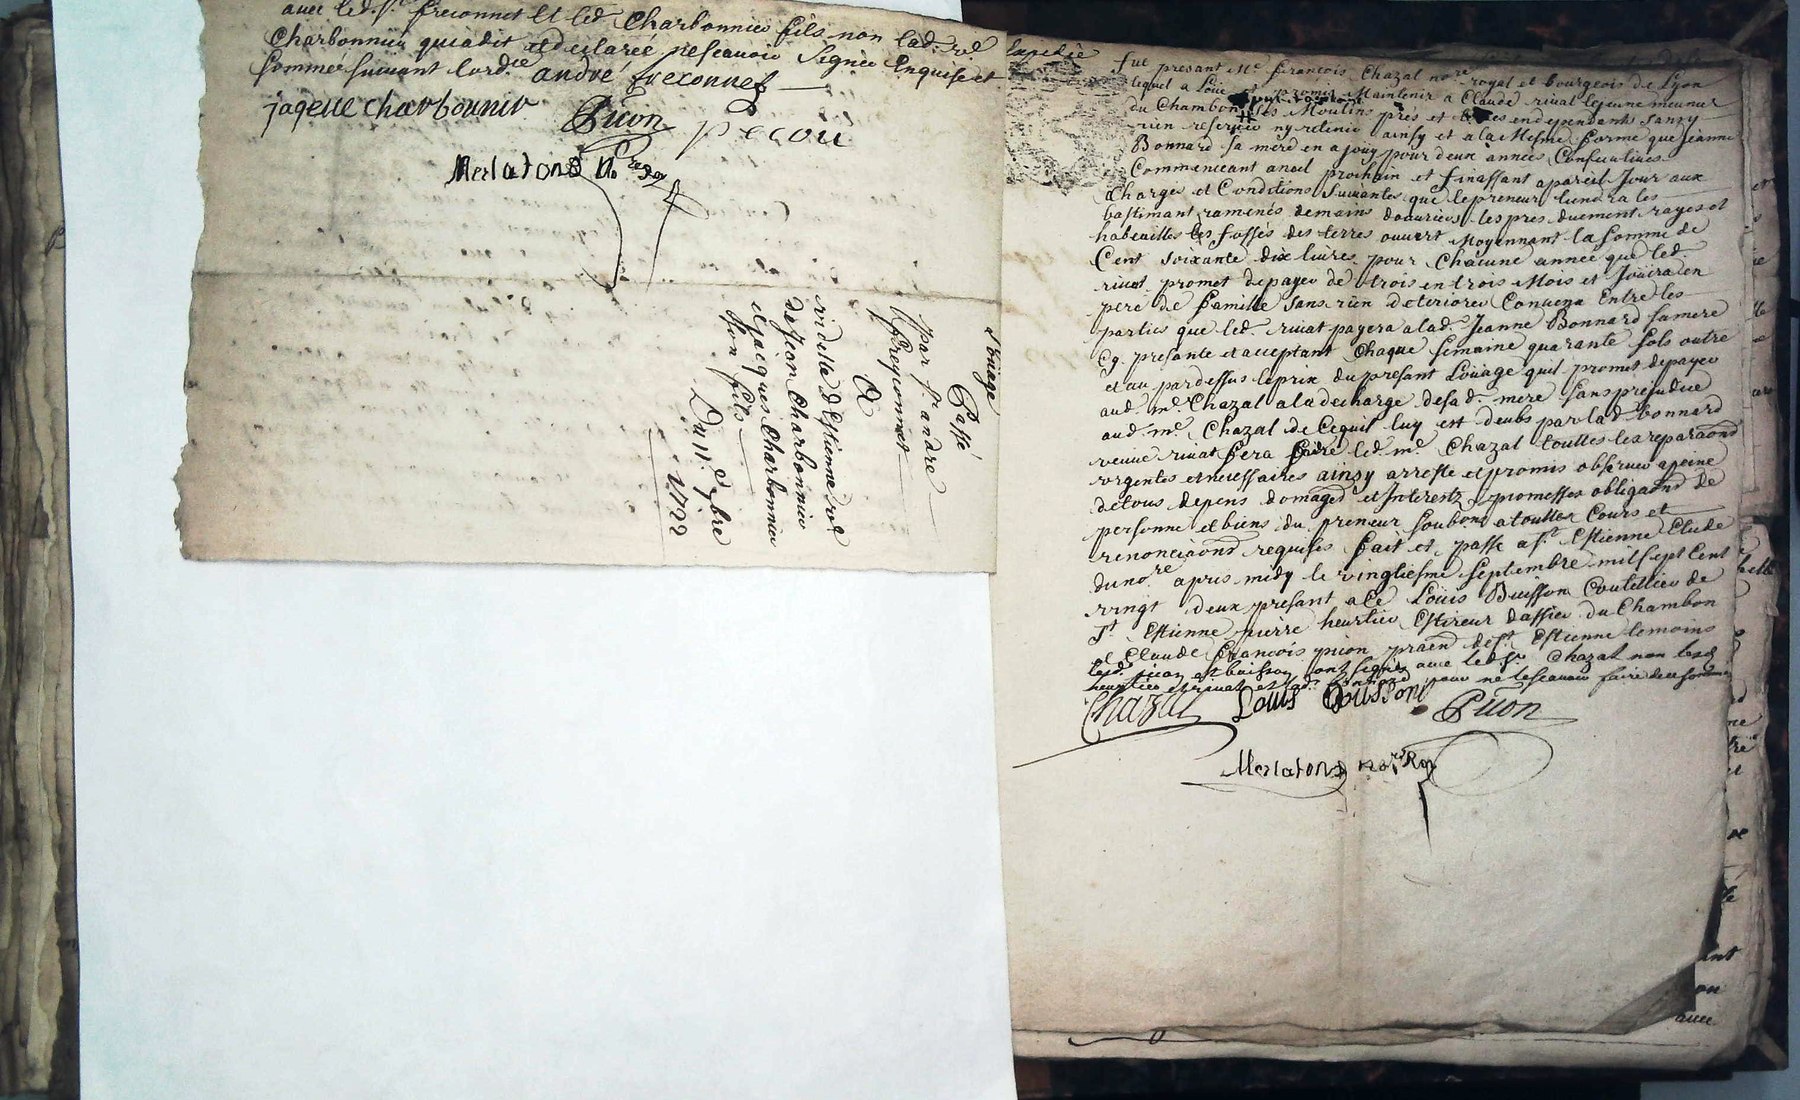 auec led. sr. freconnet et led. Charbonnier fils non lad. rve
Charbonnier qui a dit et declaree ne scauoir Signer Enquise et
sommee suiuant lord.ce andré freconnet
jaques charbonnier
Picon pecou
Merlatons No.re Roy
Loüage
Passé
par sr. andré
freyconnet
A
de Jean Charbonnier
et Jacques Charbonnier
son fils
Du 11.e 7bre
1722
Expedié
fut presant Me. francois Chazal no.re royal et bourgeois de Lyon
liquel a Loué et promis Maintenir a Claude riuat lejeune meunier
du Chambon les Moulins prés et independants sans y
rien reseruer ny retenir ainsy et a la Mesme forme que Jeanne
Bonnard sa mere en a jouy pour deux années Consecutiues
Commencant a noel prochain et finissant a pareil Jour aux
Charges et Conditions Suiuantes que le preneur tiendra les
bastimant ramenés de mains douuriers les prés duement rayés et
les fossés des terres ouuert Moyennant la somme de
Cent soixante dix liures pour Chacune année que led.
riuat promet de payer de trois en trois Mois et Joüira en
pere de famille sans rien deteriorer Conuenu Entre les
parties que led. riuat payera a lad. Jeanne Bonnard sa mere
Cy presante et acceptant Chaque semaine quarante sols outre
et au par dessus le prix du presant Loüage quil promet de payer
aud. me. Chazal a la decharge de sad. mere sans prejudice
aud. me. Chazal de Ce quil luy est deubs par lad. bonnard
veuue riuat fera faire led. me. Chazal touttes les reparaons
vrgentes et necessaires ainsy arresté et promis obseruer a peine
de tous depens domages et Interestz promesses obligaons de
personne et biens du preneur soubmis a touttes Cours et
renonciaons requises fait et passé a st. Estienne Etude
du no.re apres midy le vingtiesme septembre mil sept Cent
vingt deux presant a Ce Loüis Buisson Coutellier de
st. Estienne pierre heurtier Estireur dassier du Chambon
et Claude francois picon praen de st. Estienne temoins
led. picon et buisson ont signés auec led. sr. Chazal non lesd.
heurtier et riuat et lad. bonnard pour ne le scauoir faire de ce sommés
Chazal Louis Bouisson Picon
Merlatons no.re Roy